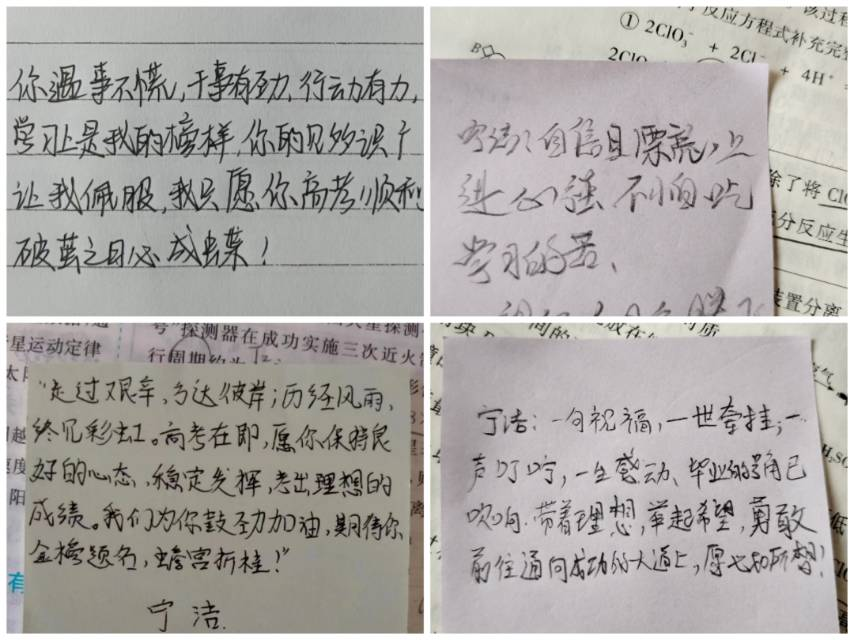 你遇事不慌,干事有劲,行动有力,
学习上是我的榜样,你的见多识广
让我佩服,我只愿你高考顺利
破茧之日必成蝶!
反应方程式补充完整
① 2ClO₃⁻ + 2Cl⁻
+ 4H⁺
B
宁洁:自信且漂亮,上
进心强 不怕吃
学习的苦、
除了将 ClO
分反应生
装置分离
号"探测器在成功实施三次近火
星运动定律
行周期约为
"走过艰辛,方达彼岸;历经风雨,
终见彩虹。高考在即,愿你保持良
好的心态,稳定发挥,考出理想的
成绩。我们为你鼓劲加油,期待你
金榜题名,蟾宫折桂!"
宁洁.
宁洁:一句祝福,一世牵挂;一
声叮咛,一生感动、毕业的号角已
吹响.带着理想,举起希望,勇敢
前往通向成功的大道上,愿如所想!